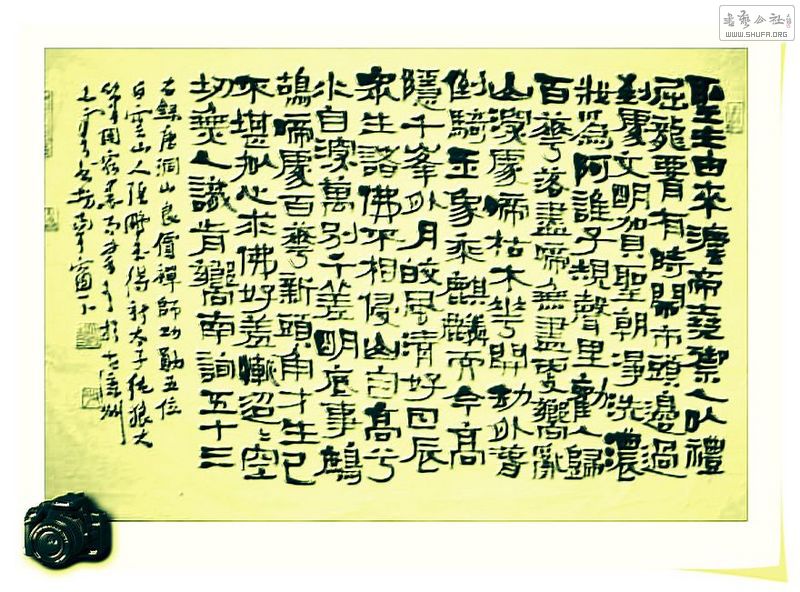 聖主由來灋帝堯御人以禮
屈龍腰有時鬧市頭邊過
到處文明賀聖朝淨洗濃
妝為阿誰子規聲里勸人歸
百華落盡啼無盡更嚮亂
山深處啼枯木華開劫外春
倒騎玉象乘麒麟而今高
隱千峯外月皎風清好日辰
眾生諸佛不相侵山自高兮
水自深萬別千差明底事鷓
鴣啼處百華新頭角才生已
不堪擬心求佛好羞慚迢〻空
劫無人識肯嚮南詢五十三
右錄唐洞山良價禪師功勳五位
白雲山人
書藝公社
WWW.SHUFA.ORG